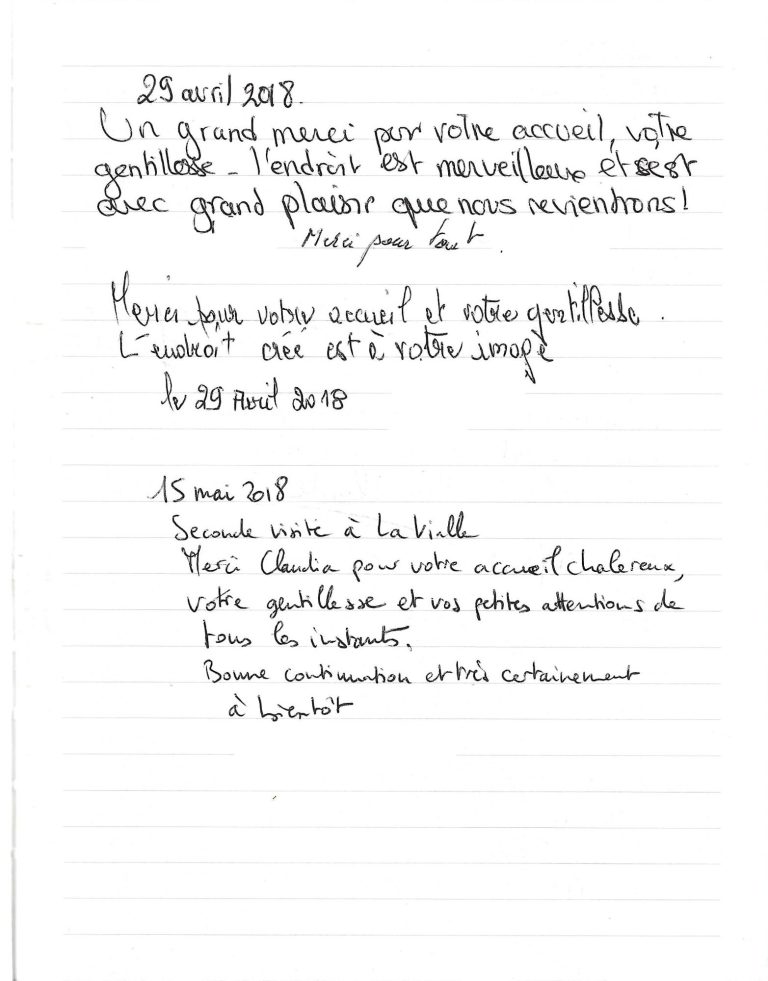 29 avril 2018.
Un grand merci pour votre accueil, votre
gentillesse - l'endroit est merveilleux et c'est
avec grand plaisir que nous reviendrons!
Merci pour tout.
Merci pour votre accueil et votre gentillesse.
L'endroit créé est à votre image
le 29 Avril 2018
15 mai 2018
Seconde visite à La Vialle
Merci Claudia pour votre accueil chaleureux,
votre gentillesse et vos petites attentions de
tous les instants.
Bonne continuation et très certainement
à bientôt